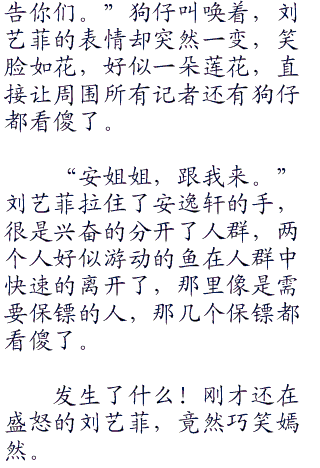 告你们。”狗仔叫唤着，刘
艺菲的表情却突然一变，笑
脸如花，好似一朵莲花，直
接让周围所有记者还有狗仔
都看傻了。
“安姐姐，跟我来。”
刘艺菲拉住了安逸轩的手，
很是兴奋的分开了人群，两
个人好似游动的鱼在人群中
快速的离开了，那里像是需
要保镖的人，那几个保镖都
看傻了。
发生了什么！刚才还在
盛怒的刘艺菲，竟然巧笑嫣
然。